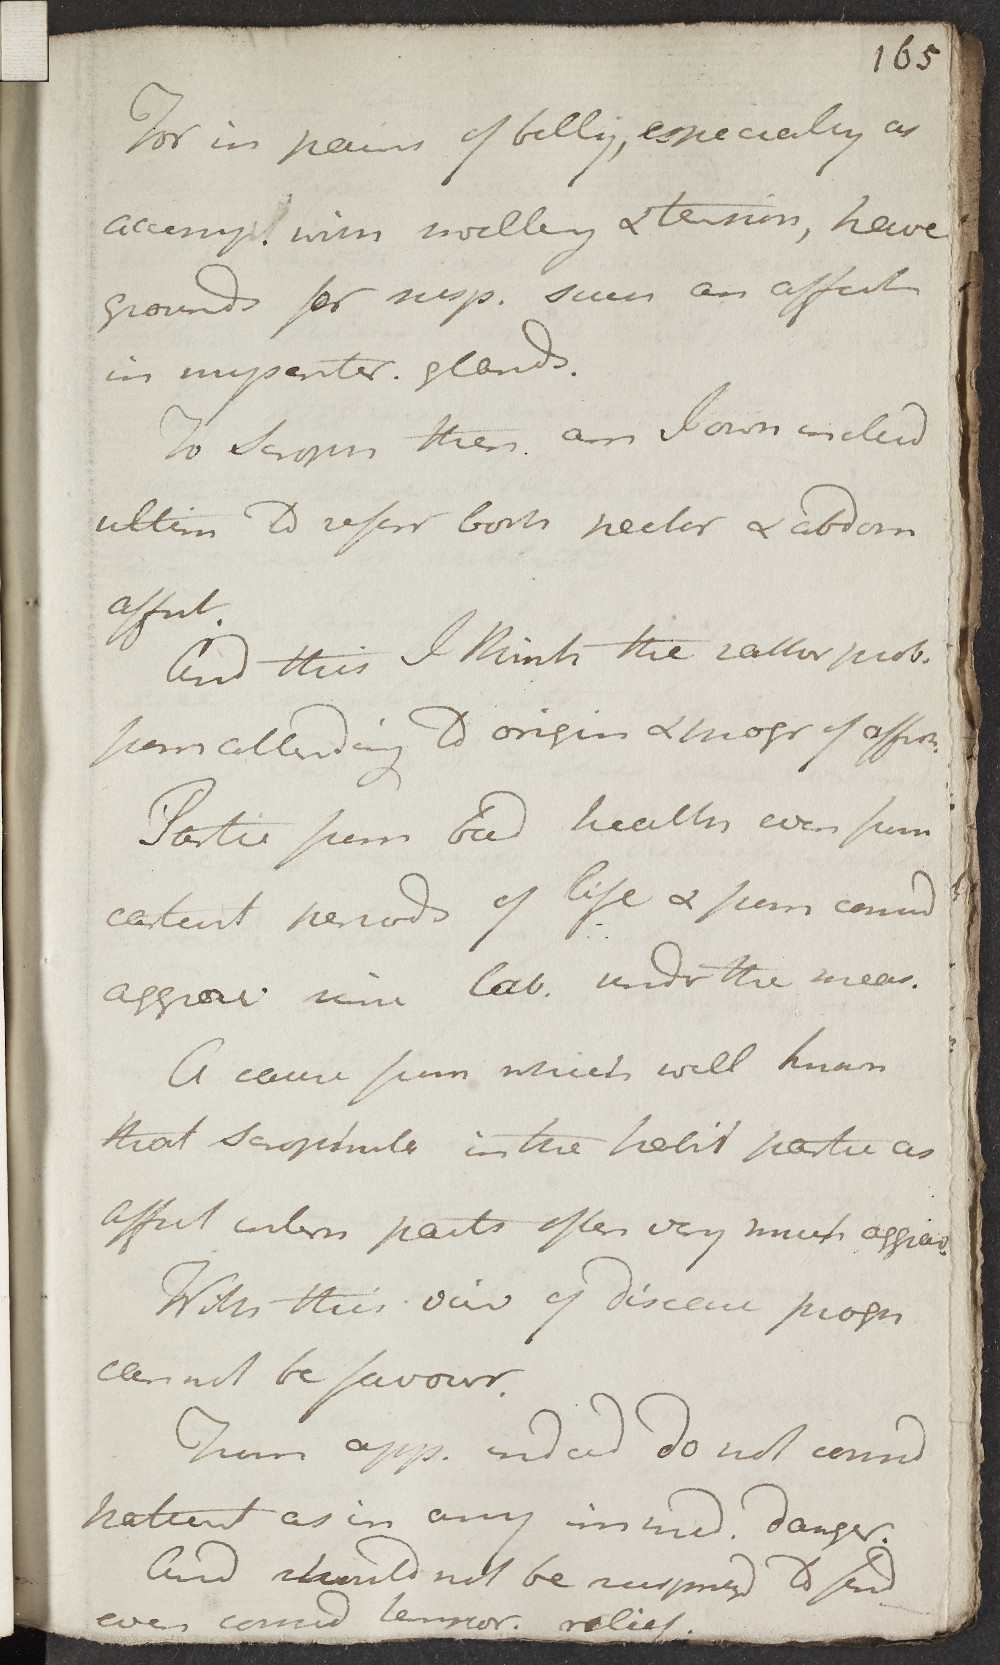 165
For in pains of belly, especially as
accomp. with swelling & tension, have
grounds for susp. such an affect
in mysenter. glands.
To Scroph then am I own inclin'd
ultim to refer both pector & abdom
affect.
And this I think the rather prob.
from attending to origin & progr of affect.
Partic from bad health even from
earliest periods of life & from consid
aggrav since lab. under the meas.
A cause from which well known
that Scrophula in the habit partic as
affect intern parts often very much aggrav.
With this view of disease progn
cannot be favour.
From app. indeed do not consid
patient as in any immed. danger.
And should not be surprised to find
even consid tempor. relief.